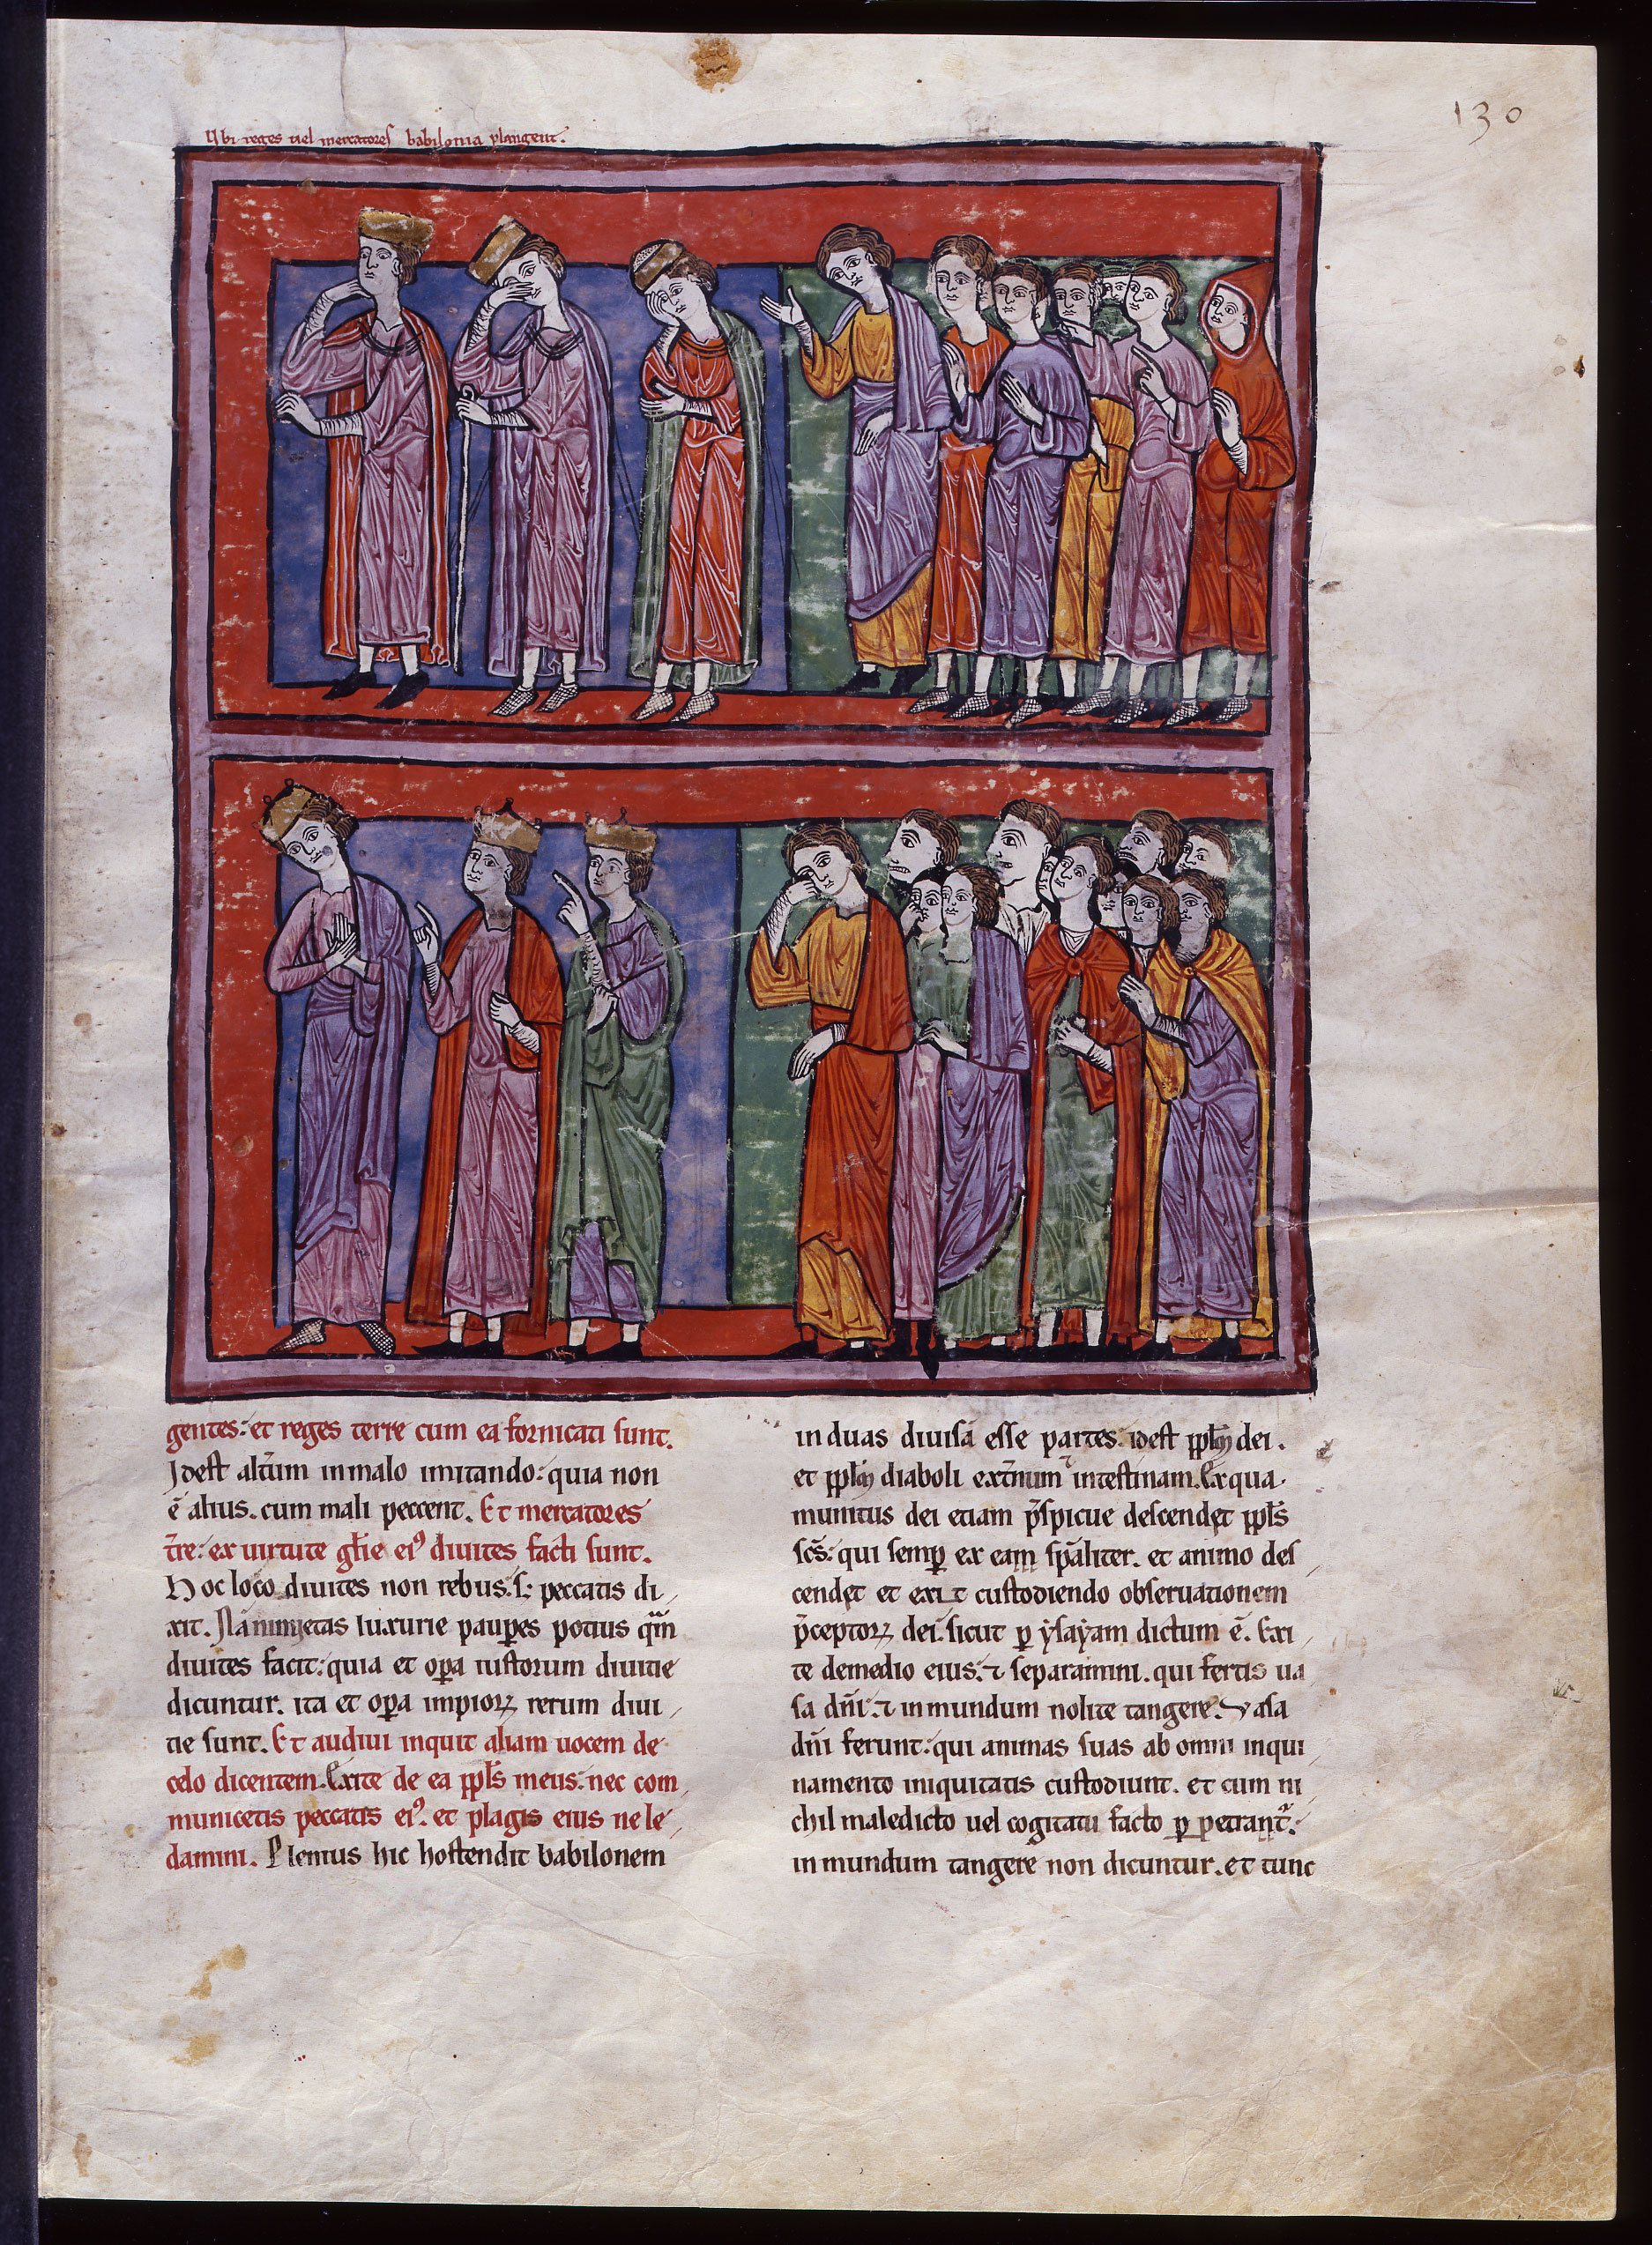 130
Ubi reges uel mercatores babilonia plangent.
gentes: et reges terre cum ea fornicati sunt.
Idest alt̄um inmalo imitando: quia non
ē alius. cum mali peccent. Et mercatores
t̄re: ex uirtute gl̄ie ei⁹ diuites facti sunt.
Hoc loco diuites non rebus. s; peccatis di
xit. Nā nimietas luxurie paup̱es potius qm̄
diuites facit: quia et op̱a iustorum diuitie
dicuntur. ita et op̱a impioꝝ rerum diui
tie sunt. Et audiui inquit aliam uocem de
celo dicentem. Exite de ea ppl̄s meus: nec com
municetis peccatis ei⁹. et plagis eius ne le
damini. Plenius hic hostendit babilonem
in duas diuisā esse partes. idest ppl̄m dei.
et ppl̄m diaboli ext̄num ⁊ intestinam. Ex qua
munitus dei etiam p̄spicue descendet ppl̄s
sc̄s: qui semp̱ ex eam sp̄aliter. et animo des
cendet et exit custodiendo obseruationem
p̄ceptoꝝ dei. sicut ꝑ ẏsaẏam dictum ē. Exi
te demedio eius: ⁊ separamini. qui fertis ua
sa dn̄i: ⁊ inmundum nolite tangere. Vasa
dn̄i ferunt: qui animas suas ab omni inqui
namento iniquitatis custodiunt. et cum ni
chil maledicto uel cogitatu facto ꝑ petrant̄:
inmundum tangere non dicuntur. et tunc